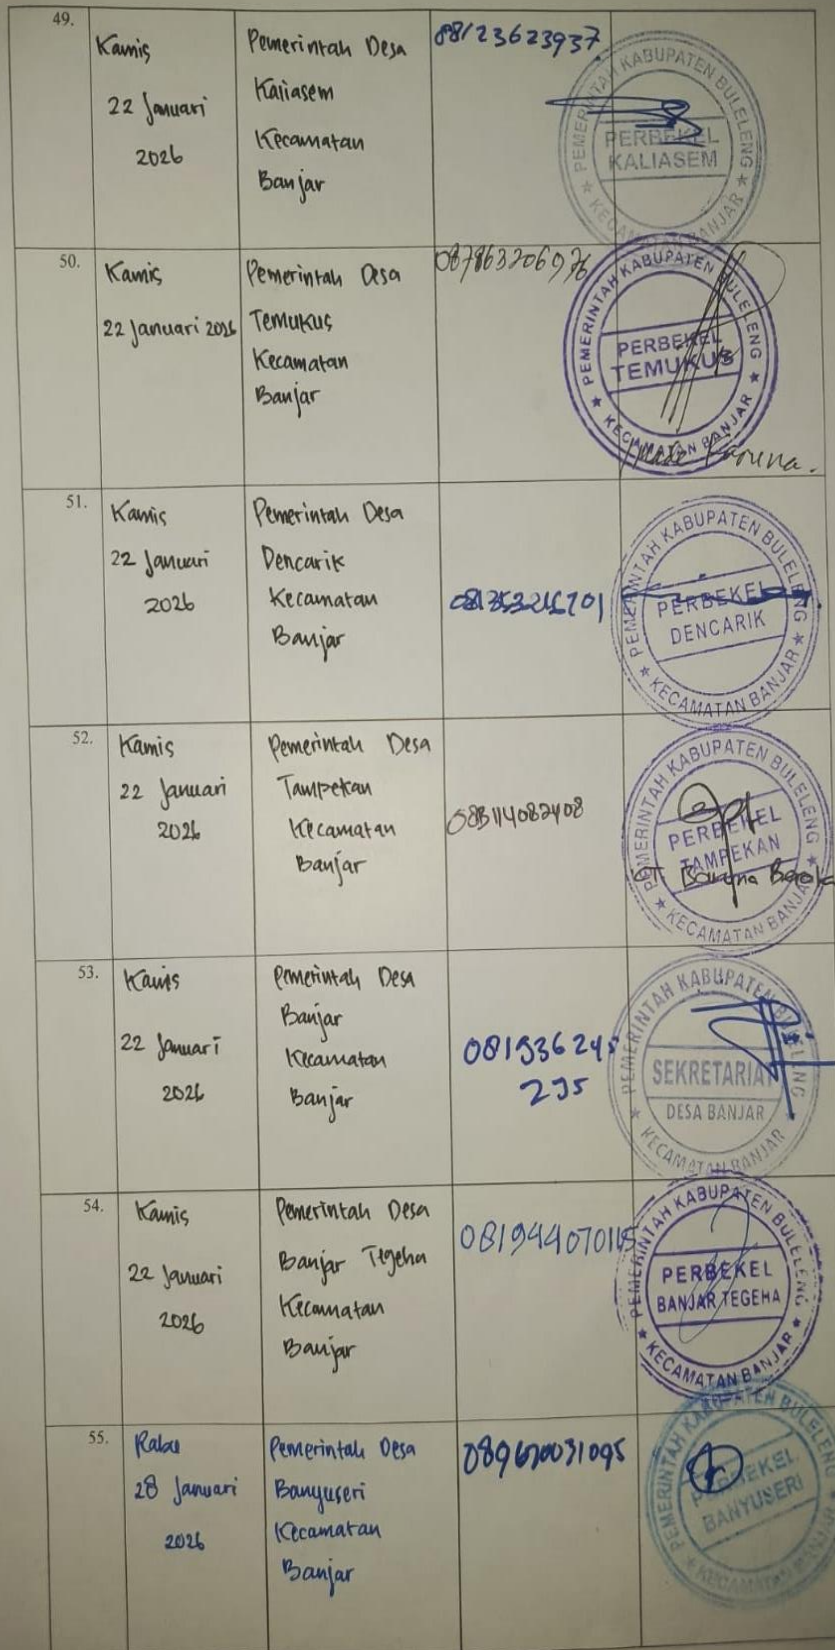 49.
Kamis
22 Januari
2026
Pemerintah Desa
Kaliasem
Kecamatan
Banjar
88123623937
PEMERINTAH KABUPATEN BULELENG
PERBEKEL
KALIASEM
KECAMATAN BANJAR
50.
Kamis
22 Januari 2026
Pemerintah Desa
Temukus
Kecamatan
Banjar
087863206976
PEMERINTAH KABUPATEN BULELENG
PERBEKEL
TEMUKUS
KECAMATAN BANJAR
51.
Kamis
22 Januari
2026
Pemerintah Desa
Dencarik
Kecamatan
Banjar
PEMERINTAH KABUPATEN BULELENG
PERBEKEL
DENCARIK
KECAMATAN BANJAR
52.
Kamis
22 Januari
2026
Pemerintah Desa
Tampekan
Kecamatan
Banjar
PEMERINTAH KABUPATEN BULELENG
PERBEKEL
TAMPEKAN
KECAMATAN BANJAR
53.
Kamis
22 Januari
2026
Pemerintah Desa
Banjar
Kecamatan
Banjar
081936245
295
PEMERINTAH KABUPATEN BULELENG
SEKRETARIAT
DESA BANJAR
KECAMATAN BANJAR
54.
Kamis
22 Januari
2026
Pemerintah Desa
Banjar Tegeha
Kecamatan
Banjar
PEMERINTAH KABUPATEN BULELENG
PERBEKEL
BANJAR TEGEHA
KECAMATAN BANJAR
55.
Rabu
28 Januari
2026
Pemerintah Desa
Banyuseri
Kecamatan
Banjar
089670031095
PEMERINTAH KABUPATEN BULELENG
PERBEKEL
BANYUSERI
KECAMATAN BANJAR